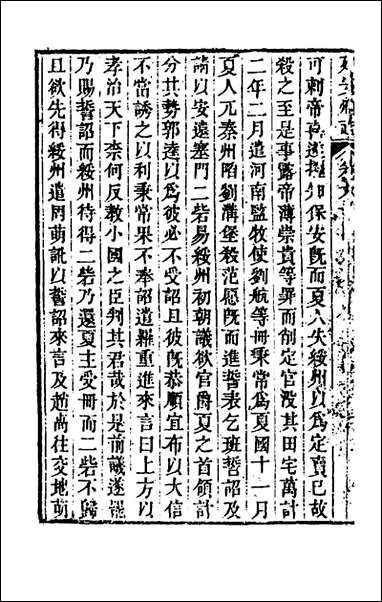 可刺帝再遂擢知保安旣而夏人失綏州以爲定賣已故
殺之至是事露帝薄崇貴等罪而削定官沒其田宅萬計
二年二月遣河南監牧使劉航等冊秉常爲夏國十一月
夏人冦秦州陷劉溝堡殺范愿旣而進誓表乞班誓詔及
請以安遠塞門二砦易綏州初朝議欲官爵夏之首領計
分其勢郭逵以爲彼必不受詔且彼旣恭順宜布以大信
不當誘之以利秉常果不奉詔遣羅重進來言曰上方以
孝治天下柰何反敎小國之臣判其君哉於是前議遂罷
乃賜誓詔而綏州待得二砦乃還夏主受冊而二砦不歸
且欲先得綏州遣罔萌訛以誓詔來言及趙卨往交地萌